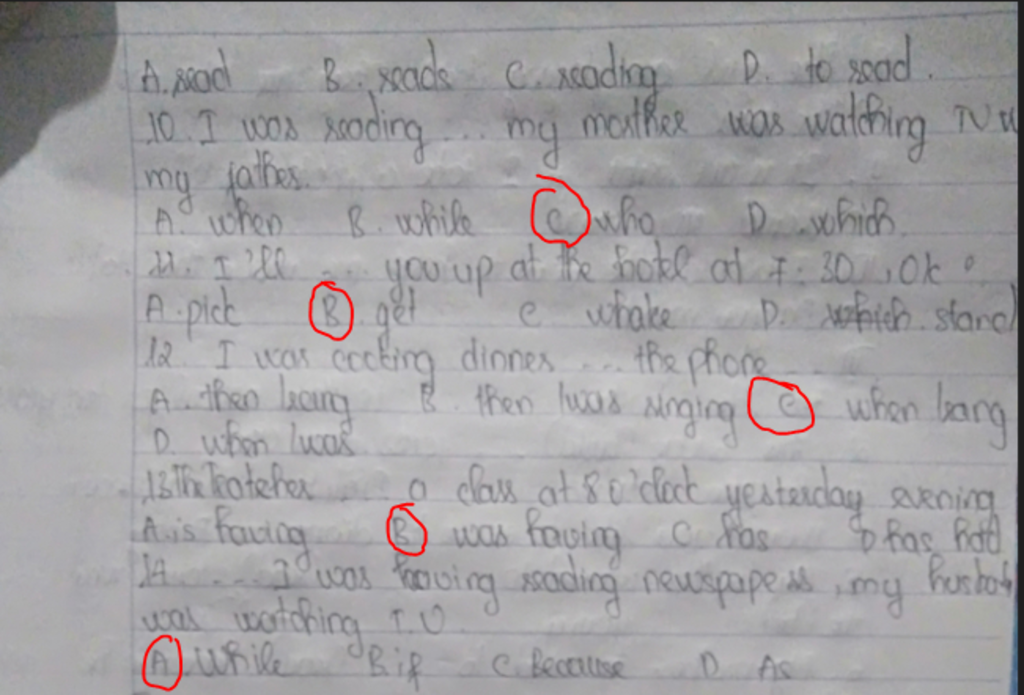 A. read B. reads C. reading D. to read.
10. I was reading ... my mother was watching TV
my father.
A. when B. while C who D. which
11. I'll ... you up at the hotel at 7:30, Ok
A. pick B get C whake D. stand
12. I was cooking dinner .... the phone
A. then B. then /was C when
D. when /was
13 The ...... a class at 8 o'clock yesterday evening
A. is having B was having C has D has had
14 .... I was having reading newspapers, my
was watching T.V
A. While B if C Because D As